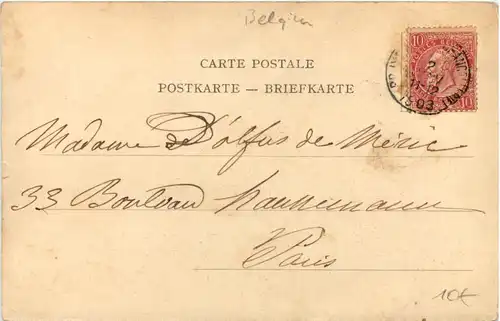 Belgien
CARTE POSTALE
POSTKARTE — BRIEFKARTE
10 10
1903
Madame Dolfus de Méric
33 Boulevard Haussmann
Paris
10€